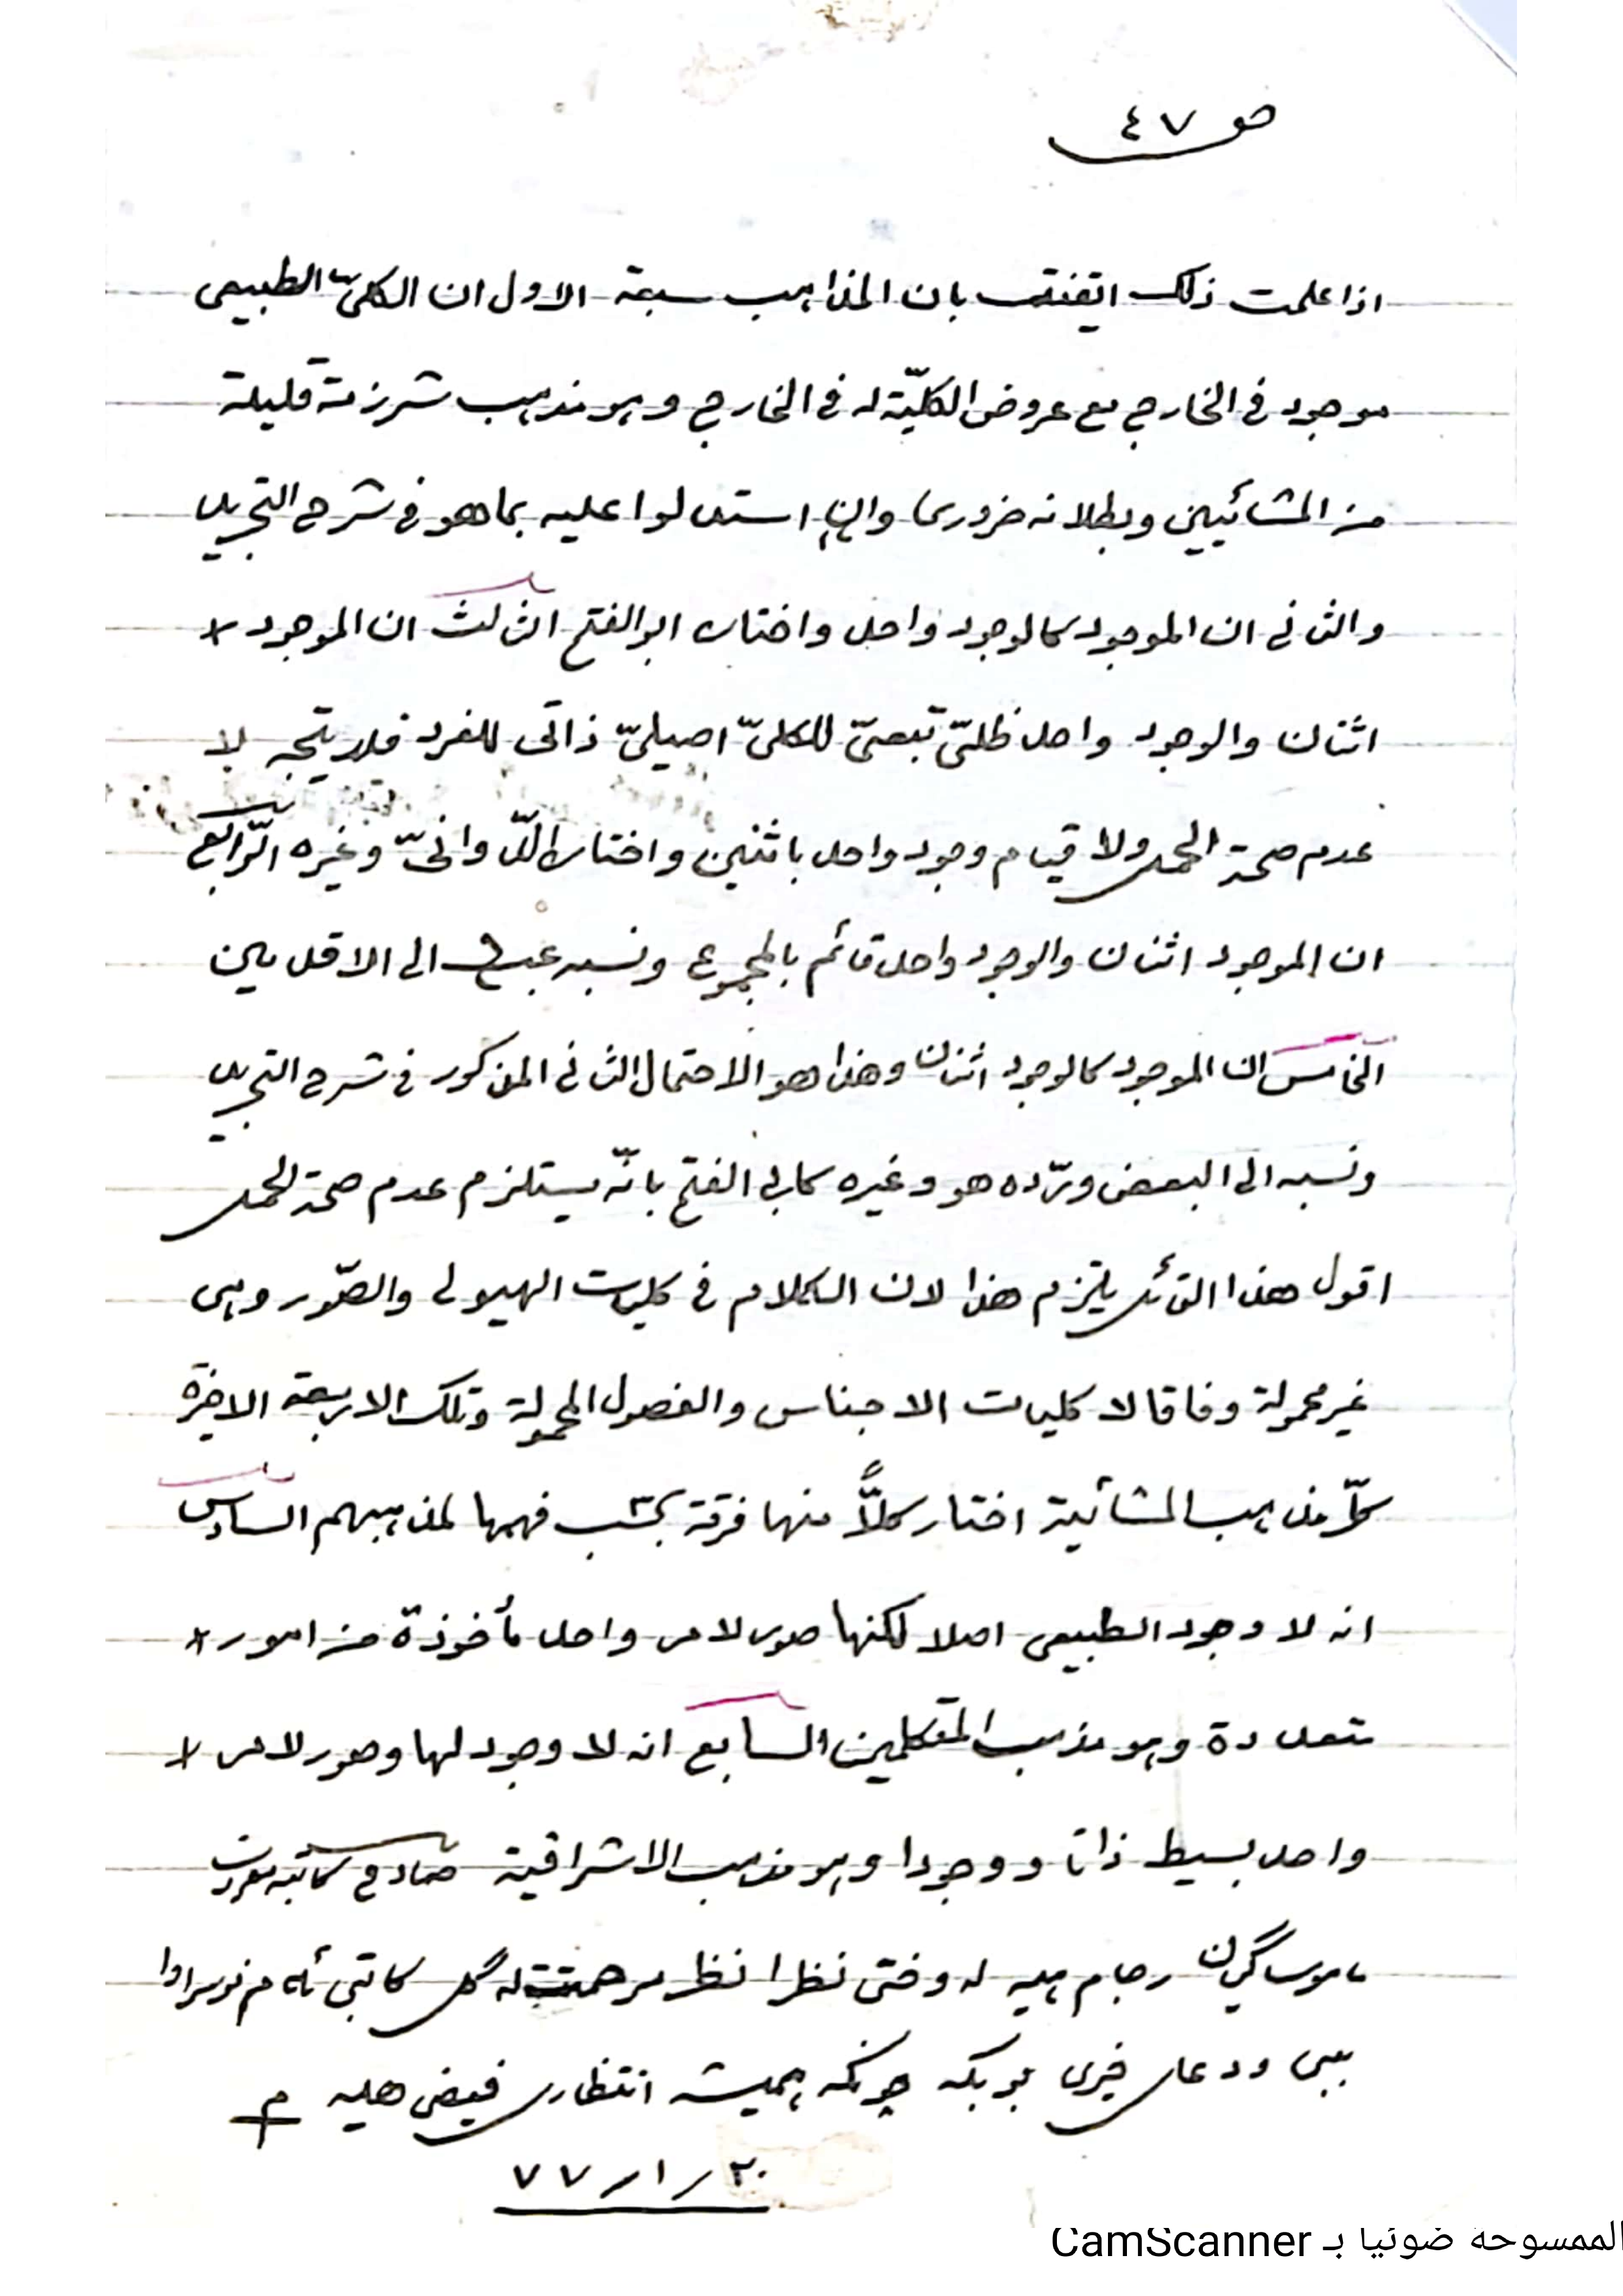 ص ٤٧
اذا علمت ذلك اتقنت بان المذاهب سبعة الاول ان الكلىّ الطبيعى
موجود فى الخارج مع عروض الكليّة له فى الخارج وهو مذهب شرذمة قليلة
من المشائيين وبطلانه ضرورى وان استدلوا عليه بما هو فى شرح التجريد
والثانى ان الموجود كالوجود واحد واختاره ابو الفتح الثالث ان الموجود *
اثنان والوجود واحد ظلىّ تبعىّ للكلىّ اصيلىّ ذاتى للفرد فلا يتجه لا
عدم صحة الحمل ولا قيام وجود واحد باثنين واختاره الدّوانىّ وغيره الرّابع
ان الموجود اثنان والوجود واحد قائم بالمجموع ونسبه الى الاقدمين
الخامس ان الموجود كالوجود اثنان وهذا هو الاحتمال الثانى المذكور فى شرح التجريد
ونسبه الى البعض وردّه هو وغيره كابى الفتح بانّه يستلزم عدم صحة الحمل
اقول هذا القائل يلتزم هذا لان الكلام فى كليات الهيولى والصّور وهى
غير محمولة وفاقا لا كليات الاجناس والفصول المحمولة وتلك الاربعة الاخيرة
كلّ مذاهب المشائية اختار كلاًّ منها فرقة بحسب فهمها لمذهبهم السادس
انه لا وجود الطبيعى اصلا لكنها صور لامر واحد مأخوذة من امور *
متعددة وهو مذهب المتكلمين السابع انه لا وجود لها وصور لامر *
واحد بسيط ذاتا ووجودا وهو مذهب الاشراقية
رجام هيه له وختى نظرا نظر مرحمت له گل كاتبى
ودعاى خيرى بو بكه چونكه هميشه انتظارى فيض هليه م
٢٠/١/٧٧
الممسوحة ضوئيا بـ CamScanner